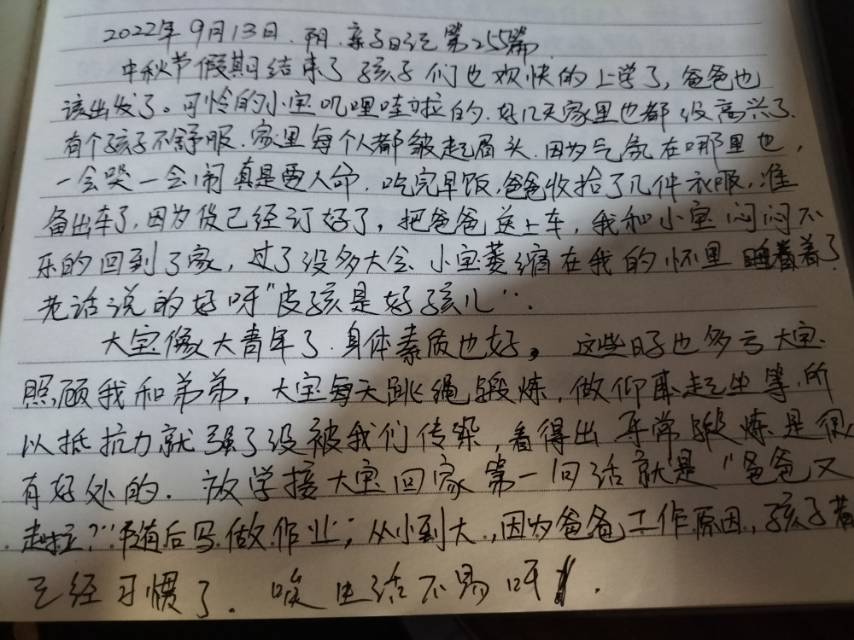 2022年9月13日.阴.亲子日记第255篇.
中秋节假期结束了孩子们也欢快的上学了,爸爸也
该出发了。可怜的小宝叽哩哇啦的.好几天家里也都没高兴了.
有个孩子不舒服.家里每个人都皱起眉头.因为气氛在哪里也,
一会哭一会闹真是要人命.吃完早饭,爸爸收拾了几件衣服,准
备出车了,因为货已经订好了,把爸爸送上车,我和小宝闷闷不
乐的回到了家,过了没多大会.小宝萎缩在我的怀里睡着了
老话说的好呀"皮孩是好孩儿".
大宝像大青年了.身体素质也好。这些日子也多亏大宝
照顾我和弟弟,大宝每天跳绳锻炼,做仰卧起坐等.所
以抵抗力就强了没被我们传染,看得出 锻炼是很
有好处的.放学接大宝回家第一句话就是"爸爸又
走啦?"随后写做作业;从小到大,因为爸爸工作原因,孩子
已经习惯了.唉生活不易呀.